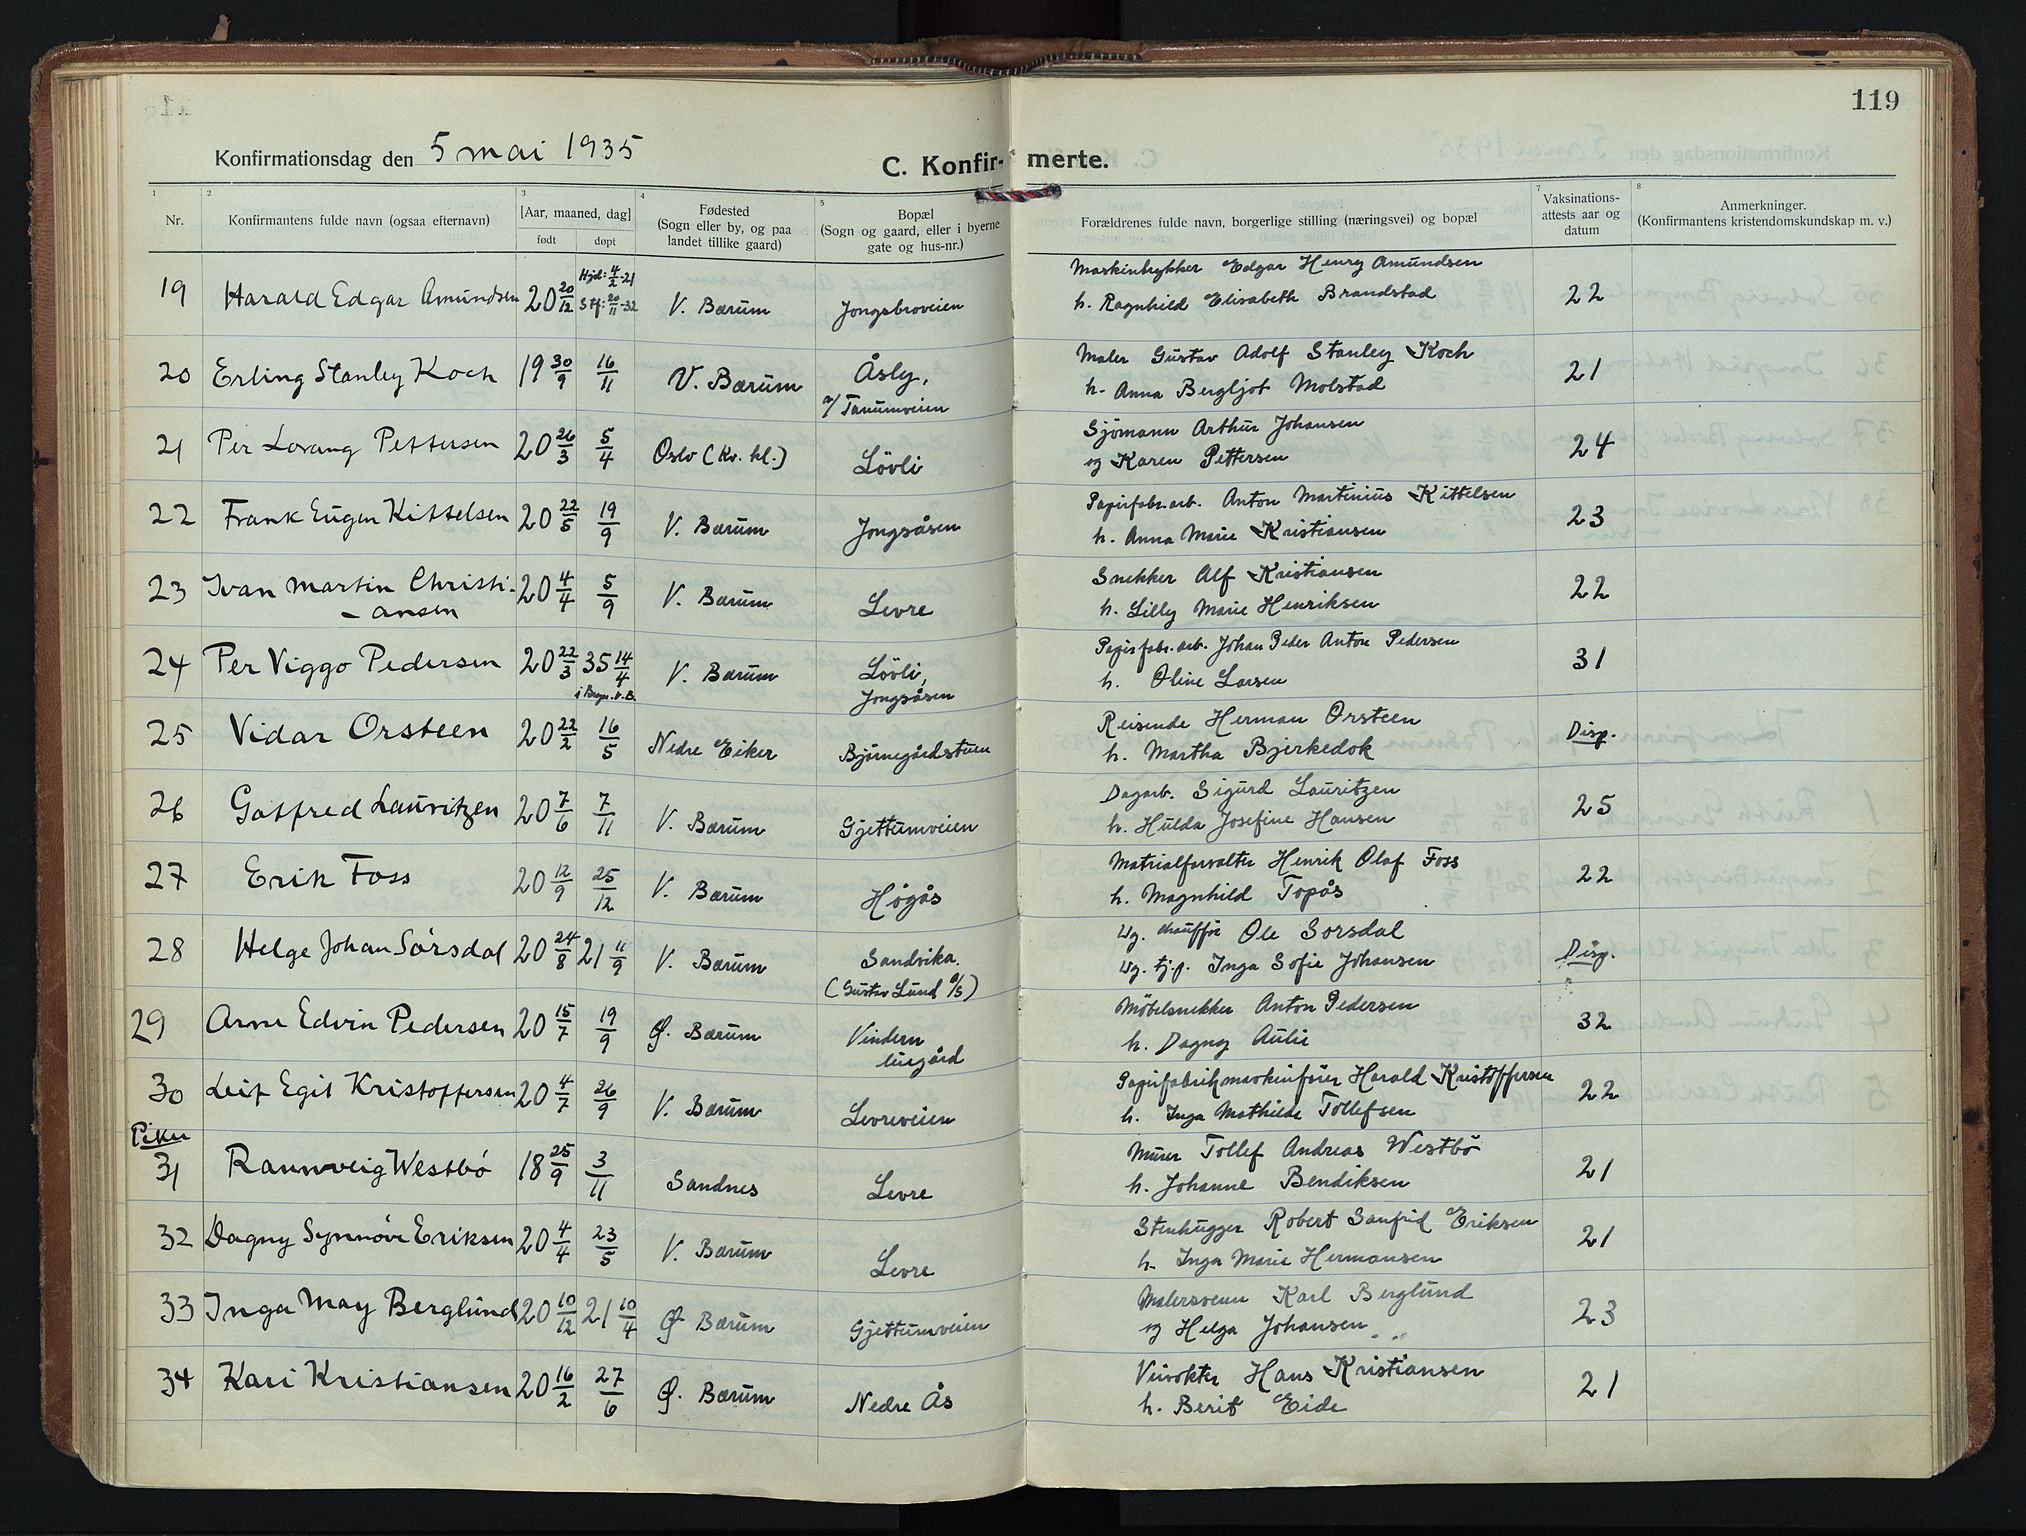 119
Konfirmationsdag den 5 mai 1935
C. Konfirmerte.
1 2 3 4 5 7 8
Nr.
Konfirmantens fulde navn (ogsaa efternavn)
[Aar, maaned, dag]
født døpt
Fødested
(Sogn eller by, og paa
landet tillike gaard)
Bopæl
(Sogn og gaard, eller i byerne
gate og hus-nr.)
Forældrenes fulde navn, borgerlige stilling (næringsvei) og bopæl
Vaksinations-
attests aar og
datum
Anmerkninger.
(Konfirmantens kristendomskundskap m. v.)
19 Harald Edgar Amundsen 20 20/12 Hjd: 4/2-21 V. Bærum Jongsbroveien Maskintrykker Edgar Henry Amundsen 22
Stf: 20/11-32 h. Ragnhild Elisabeth Brandstad
20 Erling Stanley Koch 19 30/9 16/11 V. Bærum Åsly, Maler Gustav Adolf Stanley Koch 21
v/ Tanumveien h. Anna Bergljot Molstad
21 Per Lorang Pettersen 20 26/3 5/4 Oslo (Kv. kl.) Lövli Sjömann Arthur Johansen 24
og Karen Pettersen
22 Frank Eugen Kittelsen 20 22/5 19/9 V. Bærum Jongsåsen Papirfabr.arb. Anton Martinius Kittelsen 23
h. Anna Marie Kristiansen
23 Ivan Martin Christi- 20 4/4 5/9 V. Bærum Levre Snekker Alf Kristiansen 22
- ansen h. Lilly Marie Henriksen
24 Per Viggo Pedersen 20 22/3 35 14/4 V. Bærum Lövli, Papirfabr.arb. Johan Peder Anton Pedersen 31
Jongsåsen h. Oline Larsen
25 Vidar Orsteen 20 22/2 16/5 Nedre Eiker Björnegårdstuen Reisende Herman Orsteen Disp.
h. Martha Bjerkedok
26 Gotfred Lauritzen 20 7/6 7/11 V. Bærum Gjettumveien Dagarb. Sigurd Lauritzen 25
h. Hulda Josefine Hansen
27 Erik Foss 20 12/9 25/12 V. Bærum Høgås Matrialforvalter Henrik Olaf Foss 22
h. Magnhild Topås
28 Helge Johan Sørsdal 20 24/8 21 11/9 V. Bærum Sandvika. Ug. chauffør Ole Sorsdal Disp.
(Gustav Lund A/S) Ug. tj.p. Inga Sofie Johansen
29 Arne Edvin Pedersen 20 15/7 19/9 Ø. Bærum Vindern Möbelsnekker Anton Pedersen 32
h. Dagny Aulie
30 Leif Egil Kristoffersen 20 4/7 26/9 V. Bærum Levreveien Papirfabrikmaskinfører Harald Kristoffersen 22
h. Inga Mathilde Tollefsen
Piker
31 Rannveig Westbø 18 25/9 3/11 Sandnes Levre Murer Tollef Andreas Westbø 21
h. Johanne Bendiksen
32 Dagny Synnøve Eriksen 20 4/4 23/5 V. Bærum Levre Stenhugger Robert Sanfrid Eriksen 21
h. Inga Marie Hermansen
33 Inga May Berglund 20 10/12 21 10/4 Ø. Bærum Gjettumveien Malersvenn Karl Berglund 23
og Helga Johansen
34 Kari Kristiansen 20 16/2 27/6 Ø. Bærum Nedre Ås Viirokter Hans Kristiansen 21
h. Berit Eide